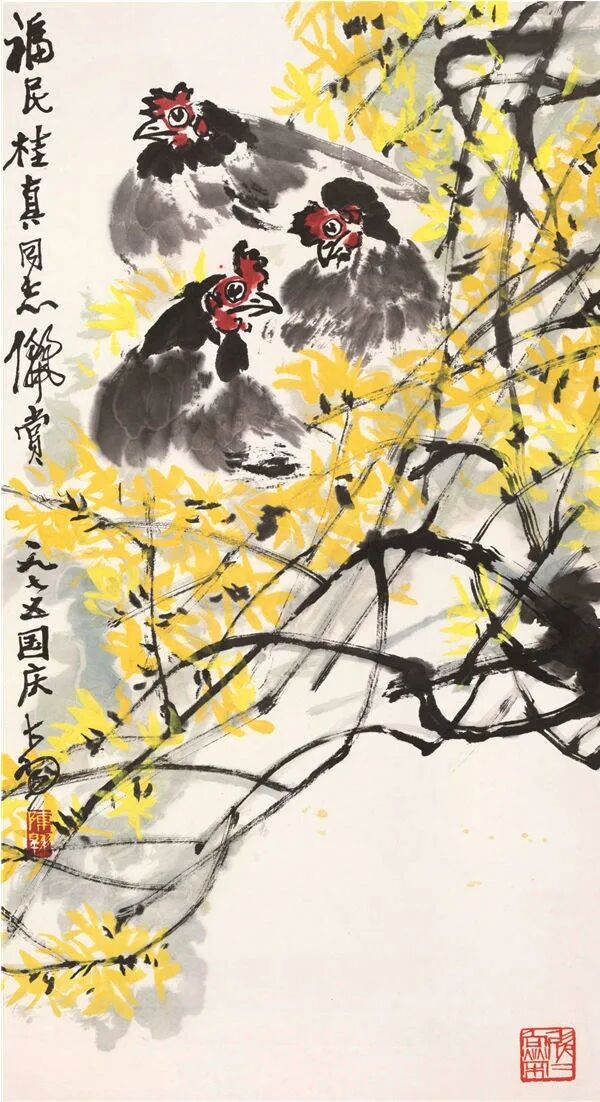 福民桂真同志儷赏 一九七五国庆 大羽